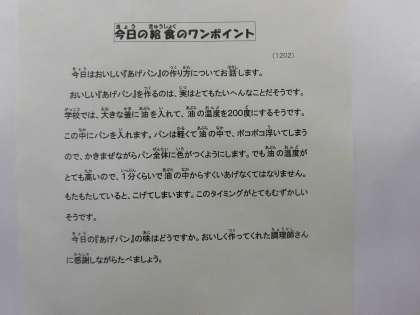 今日の給食のワンポイント
(1202)
今日はおいしい『あげパン』の作り方についてお話します。
おいしい『あげパン』を作るのは、実はとてもたいへんなことだそうです。
学校では、大きな釜に油を入れて、油の温度を200度にするそうです。
この中にパンを入れます。パンは軽くて油の中で、ポコポコ浮いてしまう
ので、かきまぜながらパン全体に色がつくようにします。でも油の温度が
とても高いので、1分くらいで油の中からすくいあげなくてはなりません。
もたもたしていると、こげてしまいます。このタイミングがとてもむずかしい
そうです。
今日の『あげパン』の味はどうですか。おいしく作ってくれた調理師さん
に感謝しながらたべましょう。